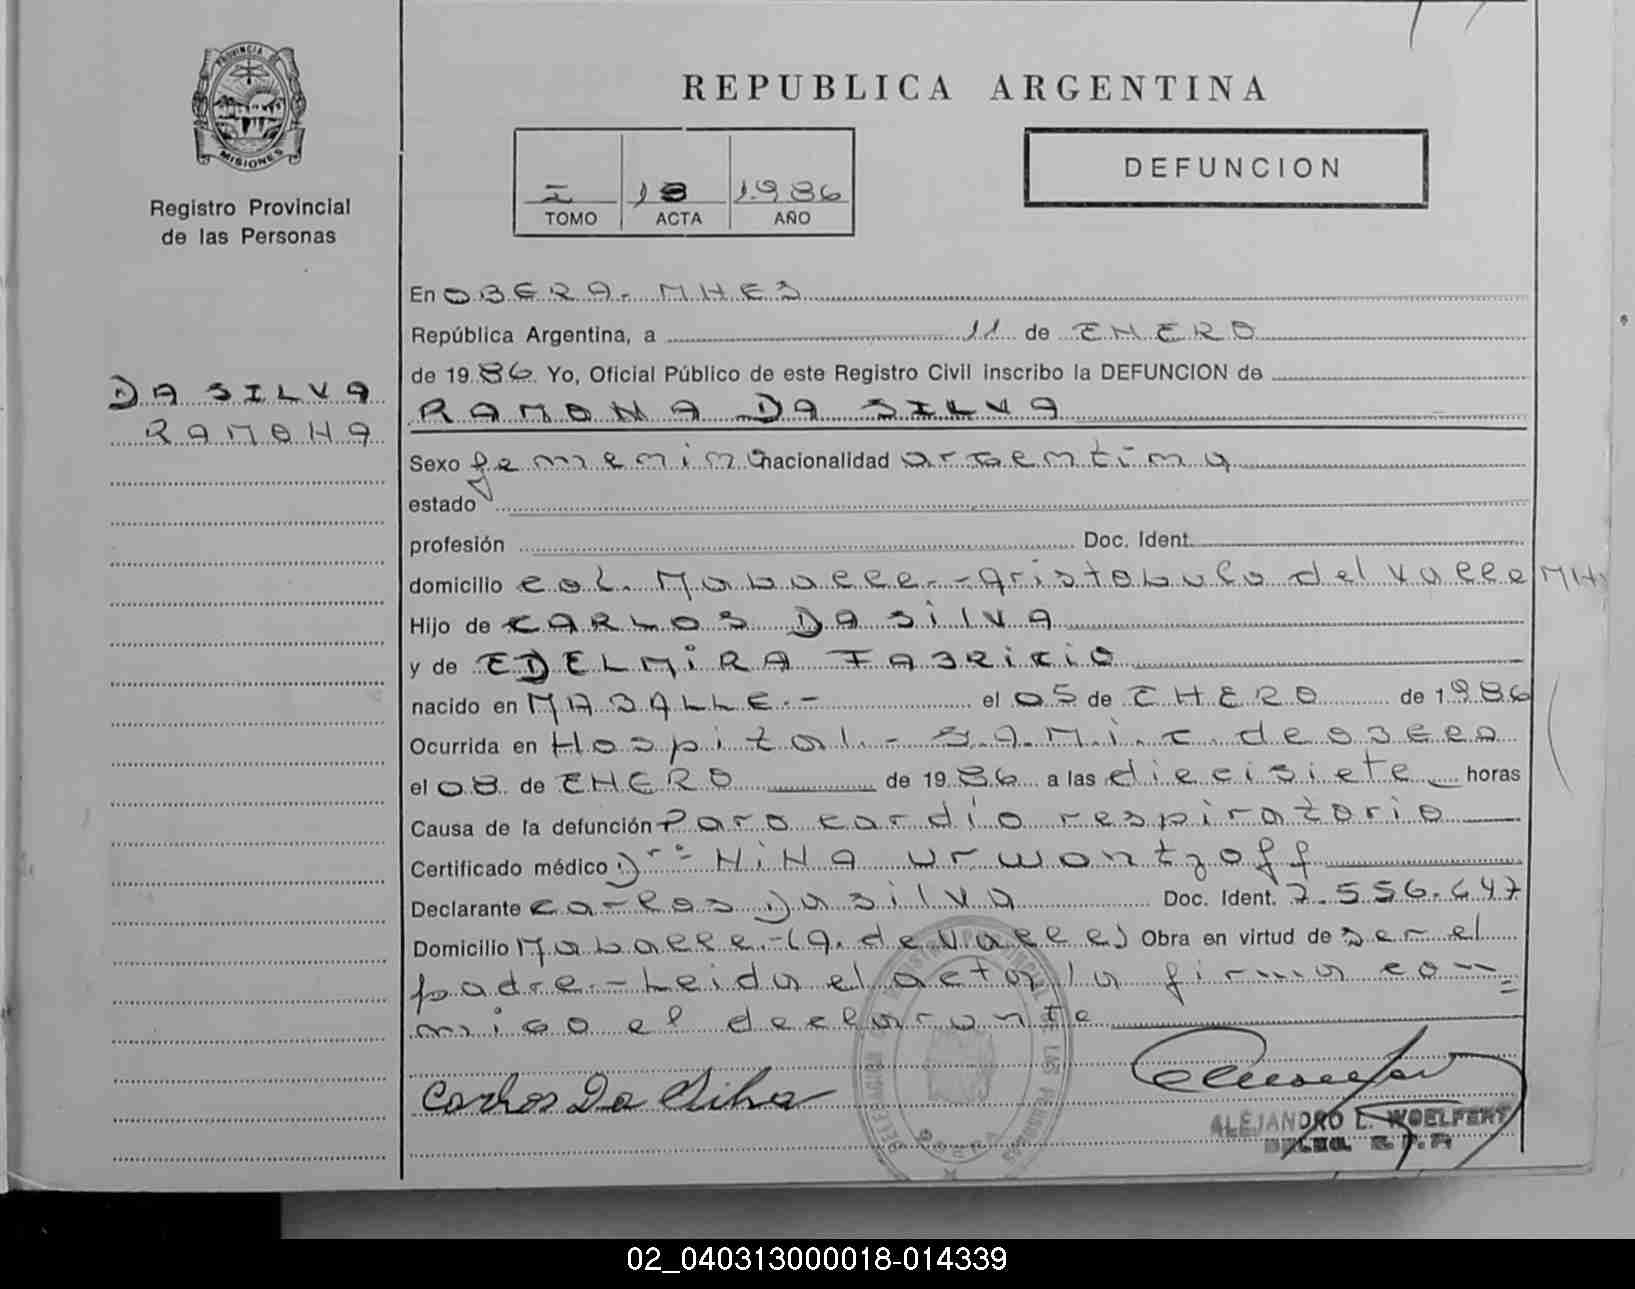 PROVINCIA DE
MISIONES
Registro Provincial
de las Personas
DA SILVA
RAMONA
REPUBLICA ARGENTINA
I 18 1.986
TOMO ACTA AÑO
DEFUNCION
En OBERA.- MNES
República Argentina, a 11 de ENERO
de 19 86 Yo, Oficial Público de este Registro Civil inscribo la DEFUNCION de
RAMONA DA SILVA
Sexo femenino nacionalidad argentina
estado
profesión Doc. Ident.
domicilio col. Maballe.-Aristobulo del Valle MN
Hijo de CARLOS DA SILVA
y de EDELMIRA FABRICIO
nacido en MABALLE.- el 05 de ENERO de 1986
Ocurrida en Hospital.- S.A.M.I.C. de OBERA
el 08 de ENERO de 19 86 a las diecisiete horas
Causa de la defunción Paro cardio respiratorio
Certificado médico Dra NINA Urwontzoff
Declarante Carlos Da silva Doc. Ident. 7.556.647
Domicilio Maballe.-(A. de Valle) Obra en virtud de ser el
padre.-Leida el acta la firma con
migo el declarante
Carlos Da Silva
ALEJANDRO L. WOELFERT
DELEG. R.P.P.
02_040313000018-014339